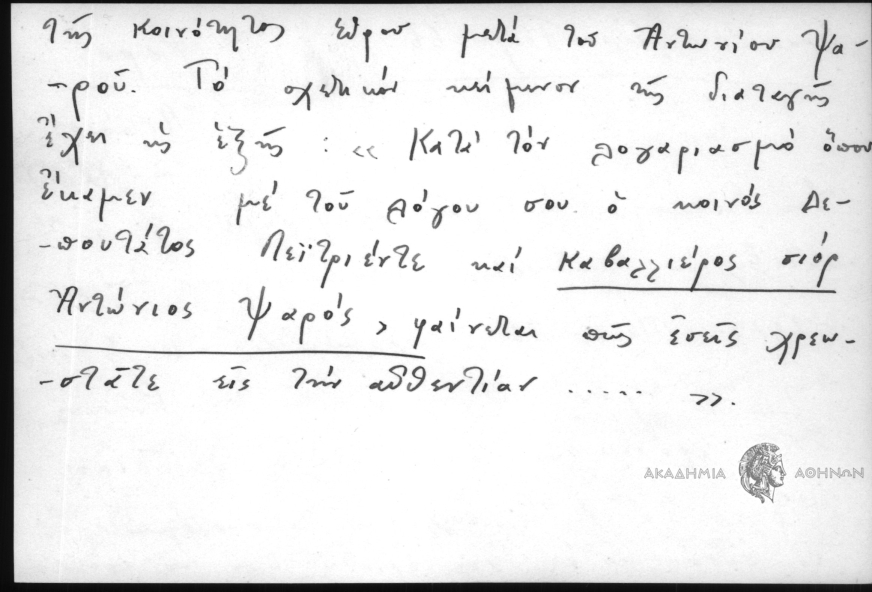 τῆς κοινότητος Σύρου μετά τοῦ Ἀντωνίου Ψα-
-ροῦ. Τό σχετικόν κείμενον τῆς διαταγῆς
ἔχει ὡς ἑξῆς : « Κατά τόν λογαριασμό ὅπου
ἔκαμεν μέ τοῦ λόγου σου ὁ κοινός Δε-
-πουτᾶτος Πεϊτριέντε καί Καβαλλιέρος σιόρ
Ἀντώνιος Ψαρός, φαίνεται πῶς ἐσεῖς χρεω-
-στᾶτε εἰς τήν αὐθεντίαν ..... ».
ΑΚΑΔΗΜΙΑ ΑΘΗΝΩΝ